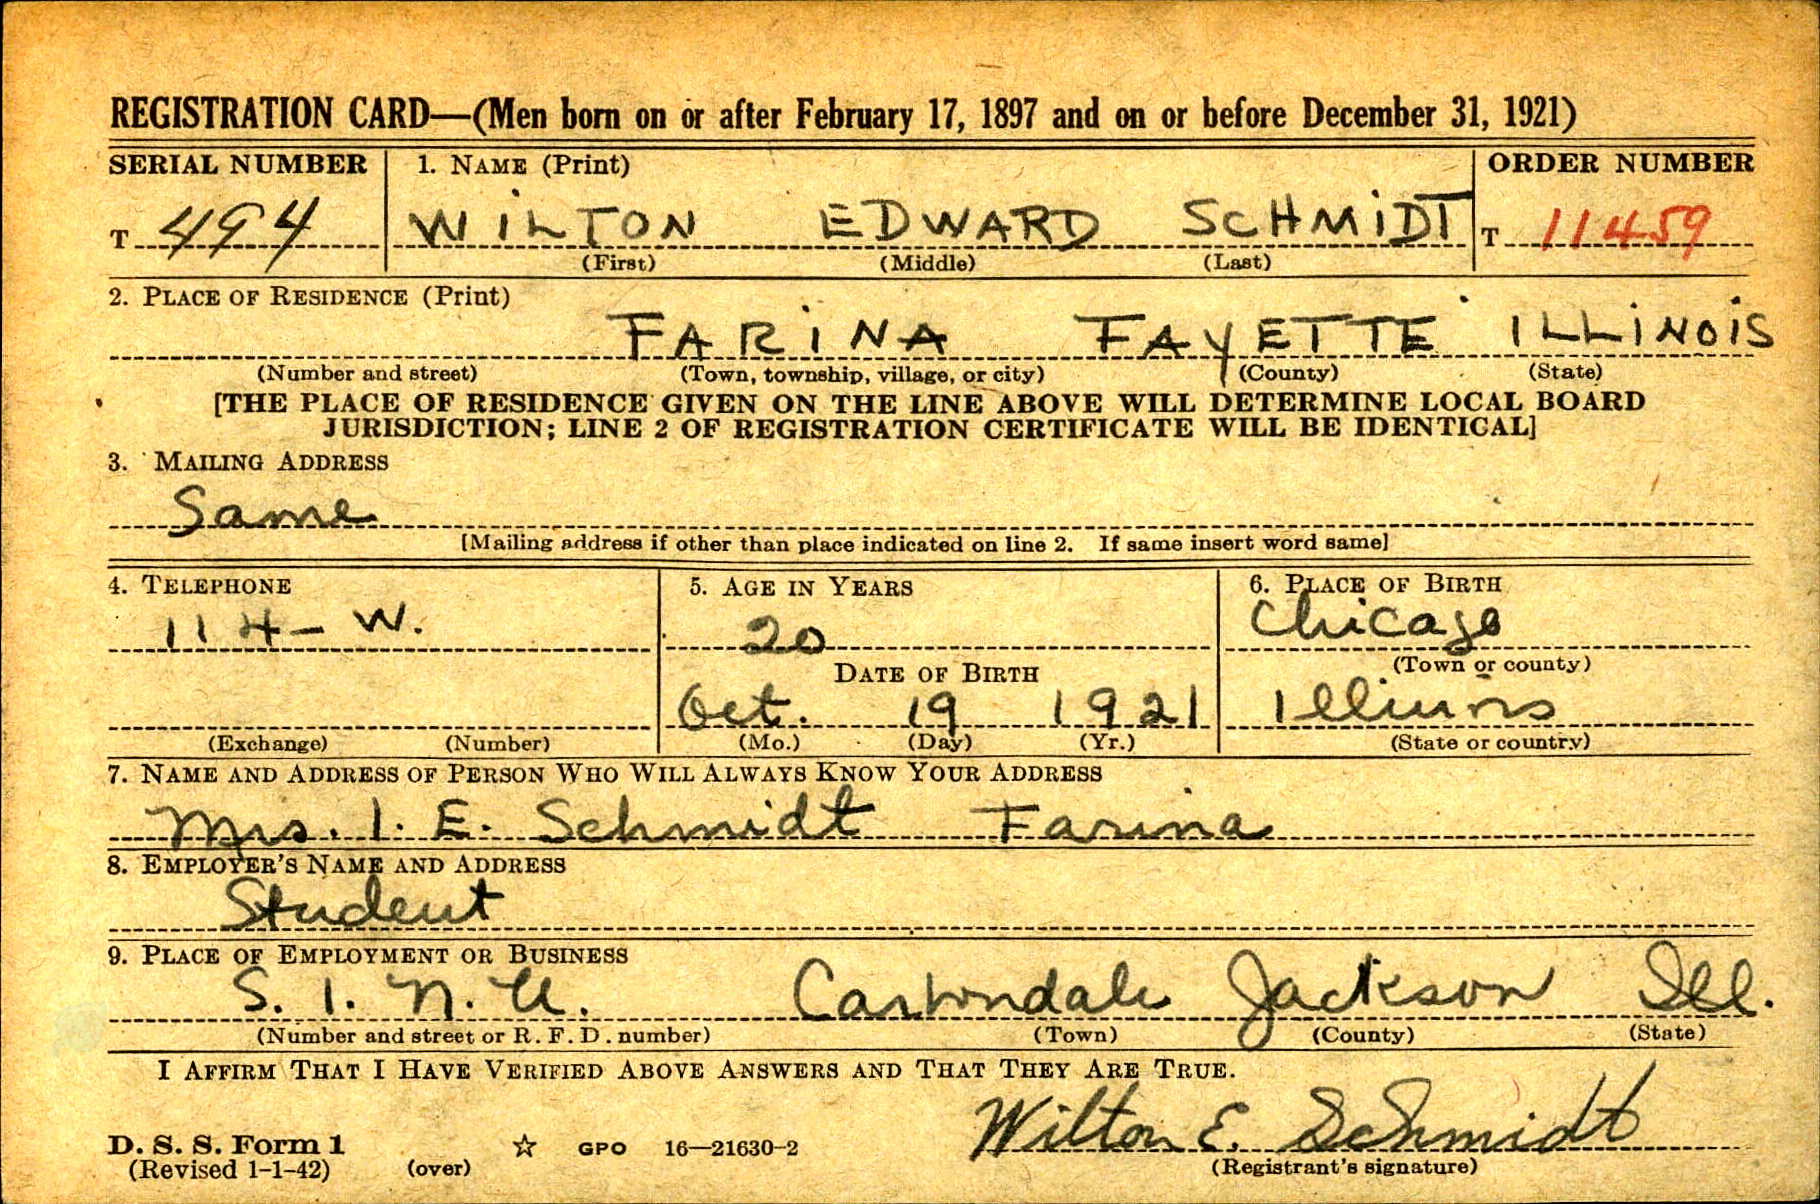 REGISTRATION CARD—(Men born on or after February 17, 1897 and on or before December 31, 1921)
SERIAL NUMBER 1. NAME (Print) ORDER NUMBER
T 494 WILTON EDWARD SCHMIDT T 11459
(First) (Middle) (Last)
2. PLACE OF RESIDENCE (Print)
FARINA FAYETTE ILLINOIS
(Number and street) (Town, township, village, or city) (County) (State)
[THE PLACE OF RESIDENCE GIVEN ON THE LINE ABOVE WILL DETERMINE LOCAL BOARD
JURISDICTION; LINE 2 OF REGISTRATION CERTIFICATE WILL BE IDENTICAL]
3. MAILING ADDRESS
Same
[Mailing address if other than place indicated on line 2. If same insert word same]
4. TELEPHONE 5. AGE IN YEARS 6. PLACE OF BIRTH
114-W. 20 Chicago
DATE OF BIRTH (Town or county)
Oct. 19 1921 Illinois
(Exchange) (Number) (Mo.) (Day) (Yr.) (State or country)
7. NAME AND ADDRESS OF PERSON WHO WILL ALWAYS KNOW YOUR ADDRESS
Mrs. I. E. Schmidt Farina
8. EMPLOYER'S NAME AND ADDRESS
Student
9. PLACE OF EMPLOYMENT OR BUSINESS
S. I. N. U. Carbondale Jackson Ill.
(Number and street or R. F. D. number) (Town) (County) (State)
I AFFIRM THAT I HAVE VERIFIED ABOVE ANSWERS AND THAT THEY ARE TRUE.
Wilton E. Schmidt
D. S. S. Form 1 ☆ GPO 16—21630-2
(Revised 1-1-42) (over) (Registrant's signature)